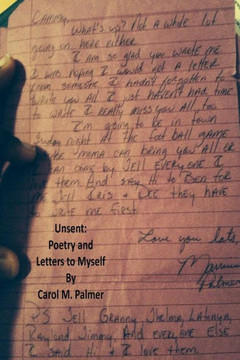 What's up? Not a whole lot
going on here either.
I am so glad you wrote me
I was hoping I would get a letter
from someone. I hadn't forgotten to
write you all I just haven't had time
to write. I really miss you all too.
I'm going to be in town
Friday night at the football game
mama can bring you all or
can come by. Tell everyone I
them. And say Hi to Ben for
me. Tell Cris + Dee they have
to write me first.
Unsent:
Poetry and
Letters to Myself
By
Carol M. Palmer
Love you lots,
P.S Tell Granny, Thelma, Latonya,
Ray and Jimmy, And everyone Else
I said Hi + I love them.